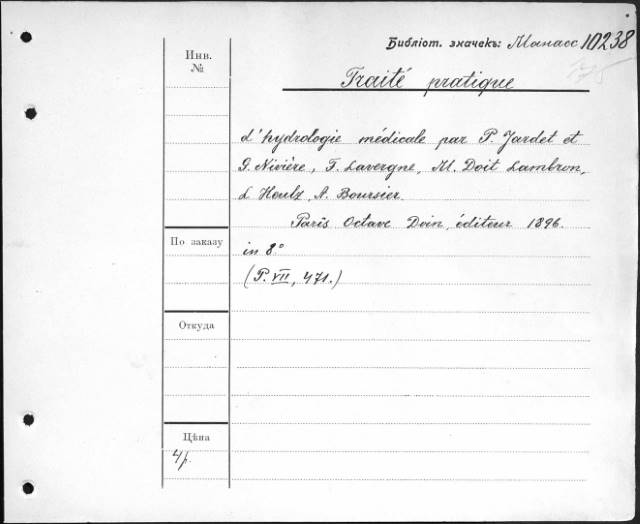 Библіот. значекъ: Манасс 10238
175
Инв.
№
Traité pratique
d'hydrologie médicale par P. Jardet et
G. Nivière, F. Lavergne, M. Doit Lambron,
L Heulz, A. Boursier.
Paris Octave Doin, éditeur 1896.
По заказу
in 8°
(P. VII, 471.)
Откуда
Цѣна
4р.